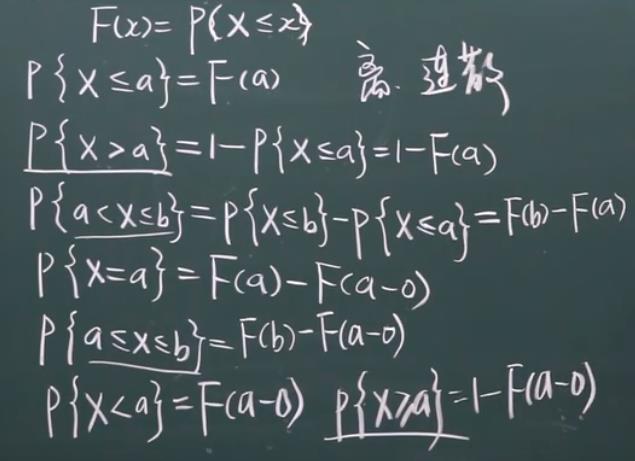 F(x)= P{X≤x}
P{X≤a}=F(a) 离. 连散
P{X>a}=1-P{X≤a}=1-F(a)
P{a<X≤b}=P{X≤b}-P{X≤a}=F(b)-F(a)
P{X=a}=F(a)-F(a-0)
P{a≤X≤b}=F(b)-F(a-0)
P{X<a}=F(a-0) P{X≥a}=1-F(a-0)